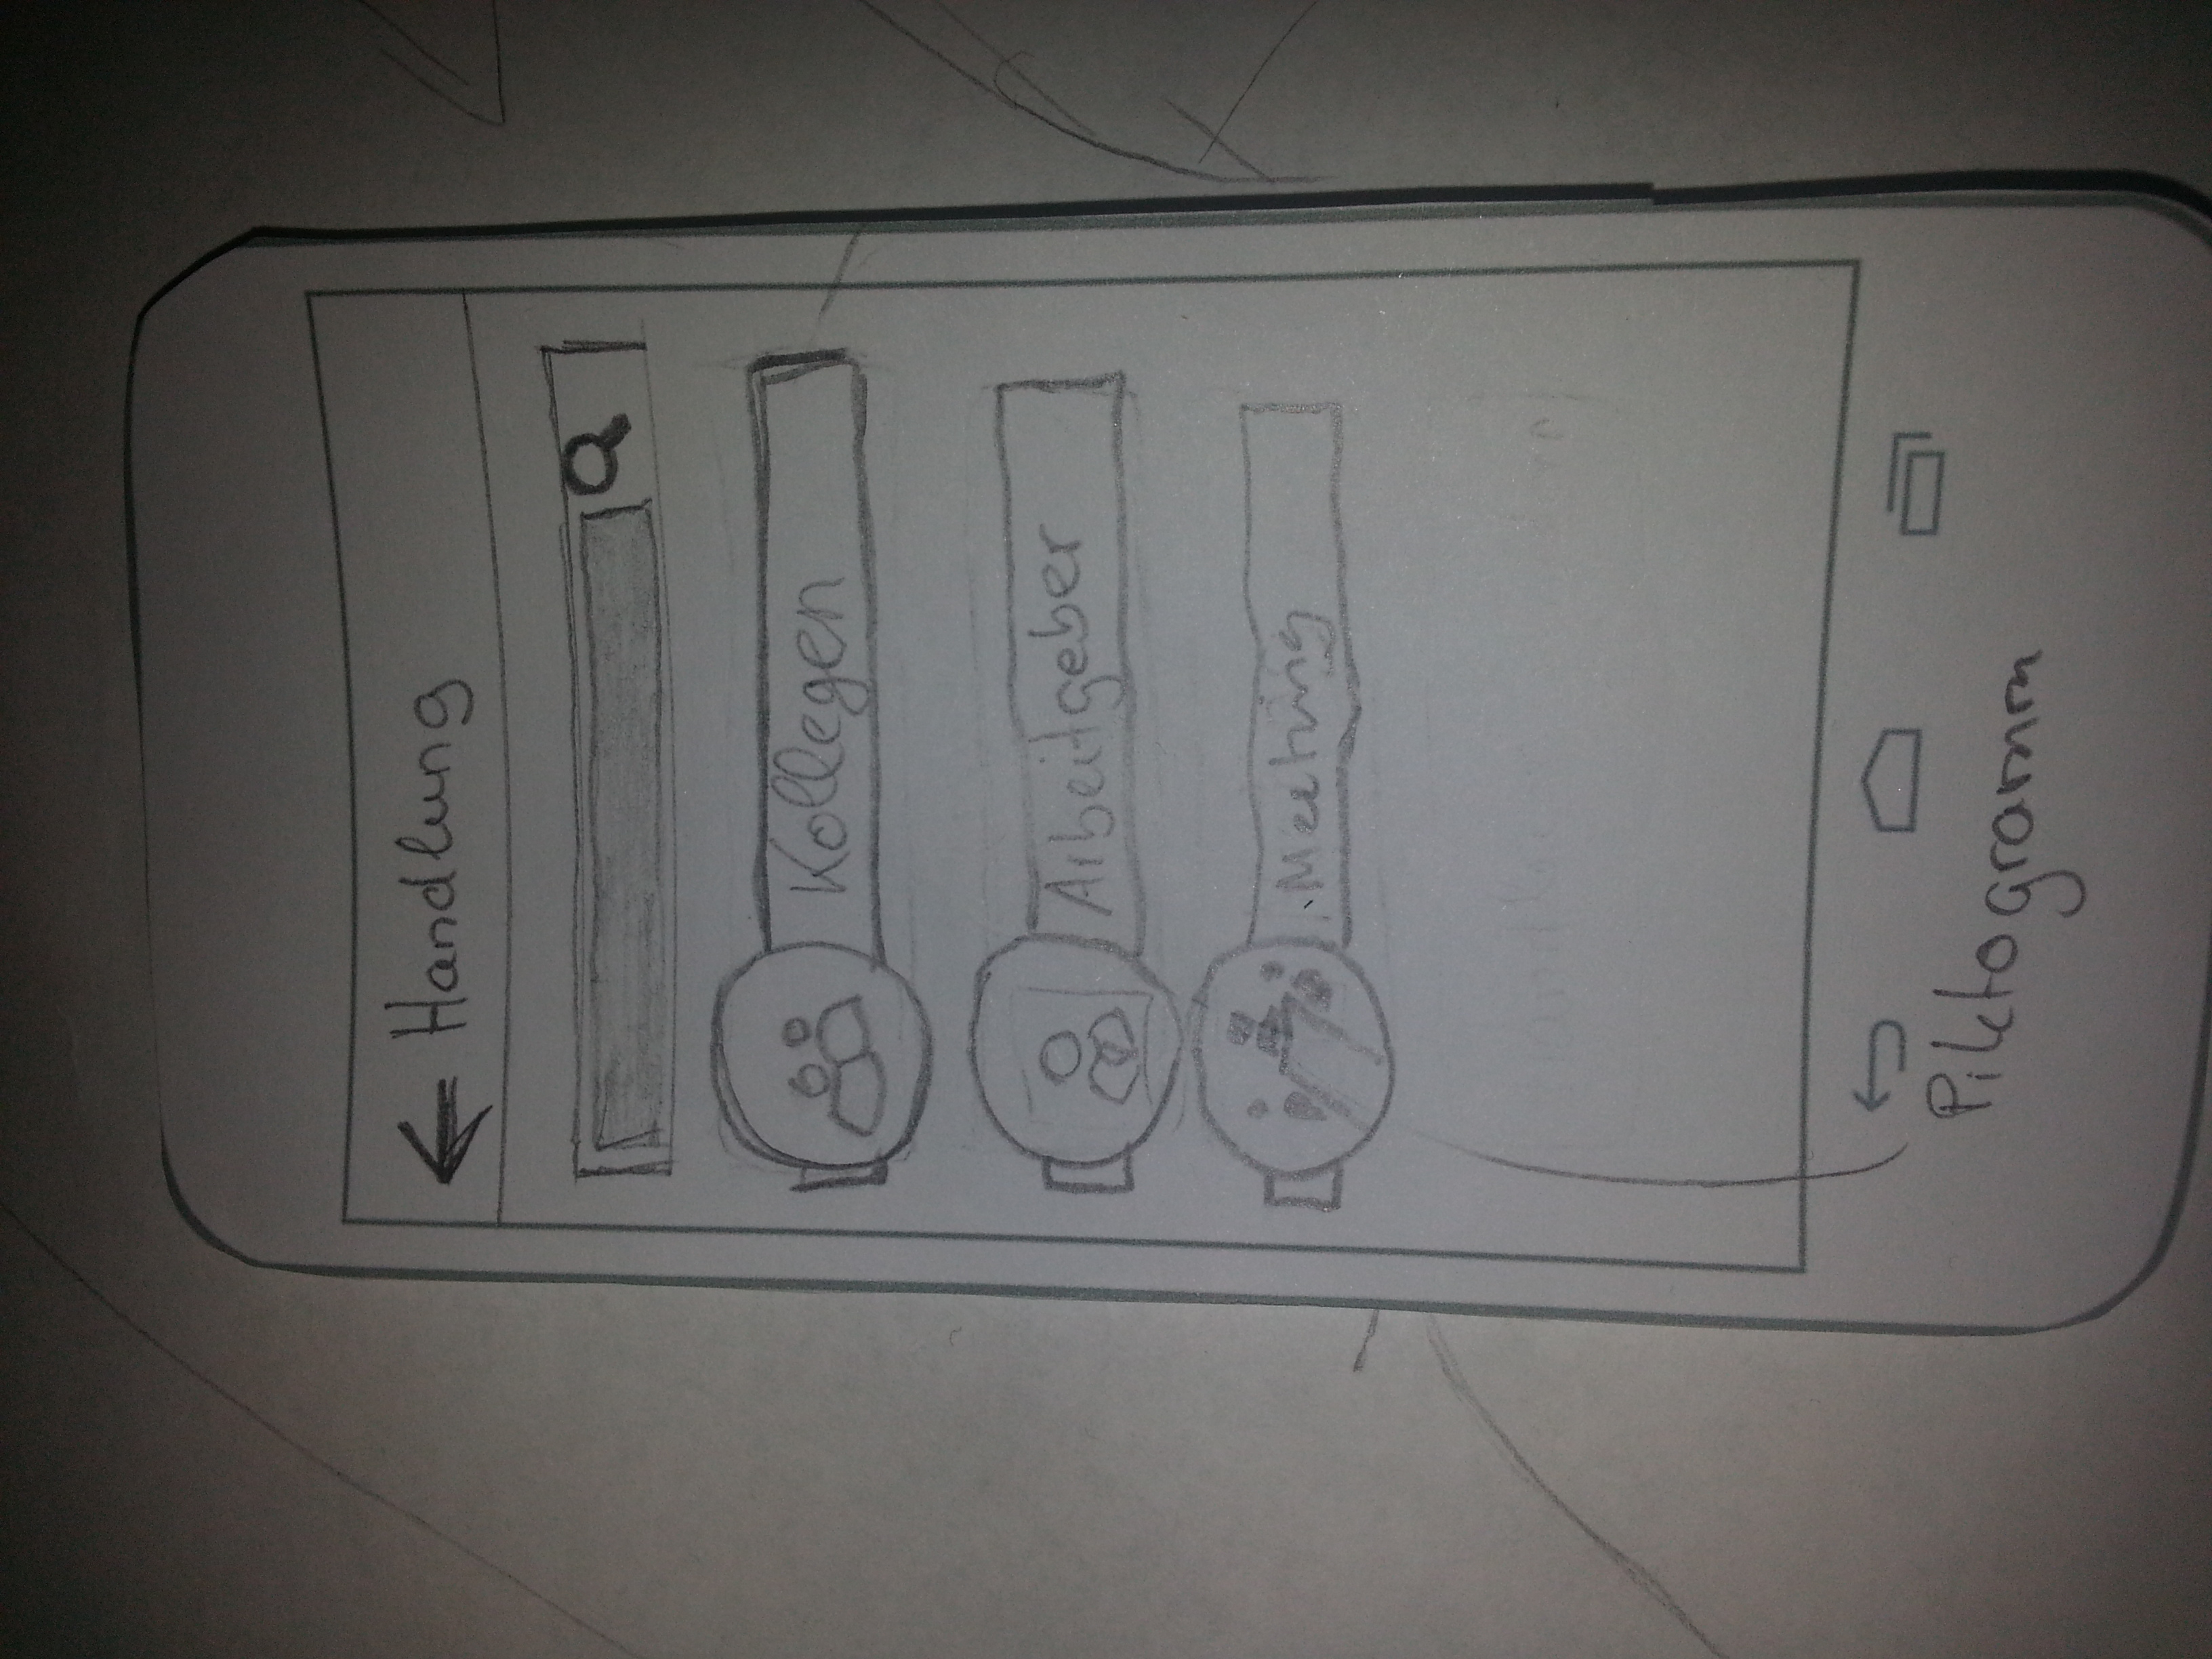 Handlung
Kollegen
Arbeitgeber
Meeting
Piktogramm